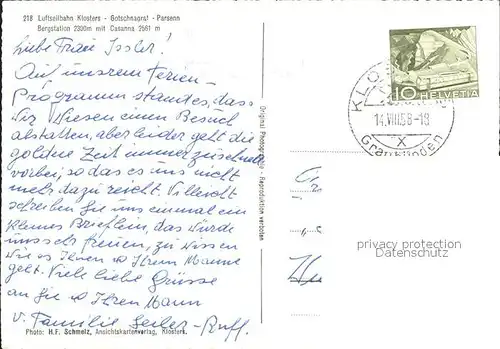 218 Luftseilbahn Klosters - Gotschnagrat - Parsenn
Bergstation 2300m mit Casanna 2561 m
liebe Frau Issler!
Auf unsrem Ferien-
Programm stand es, dass
wir Ihnen einen Besuch
abstatten, aber leider geht die
goldne Zeit immer zu schnell
vorbei, so das es uns nicht
mehr dazu reicht. Vielleicht
schreiben Sie uns einmal ein
kleines Brieflein, das würde
uns sehr freuen, zu wissen
wie es Ihnen & Ihrem Manne
geht. Viele liebe Grüsse
an Sie & Ihren Mann
v. Familie Seiler-Ruff.
Photo: H.F. Schmelz, Ansichtskartenverlag, Klosters.
Original Photographie - Reproduktion verboten
10 HELVETIA
KLO
14.VIII.58-19
X
Graubünden
privacy protection
Datenschutz